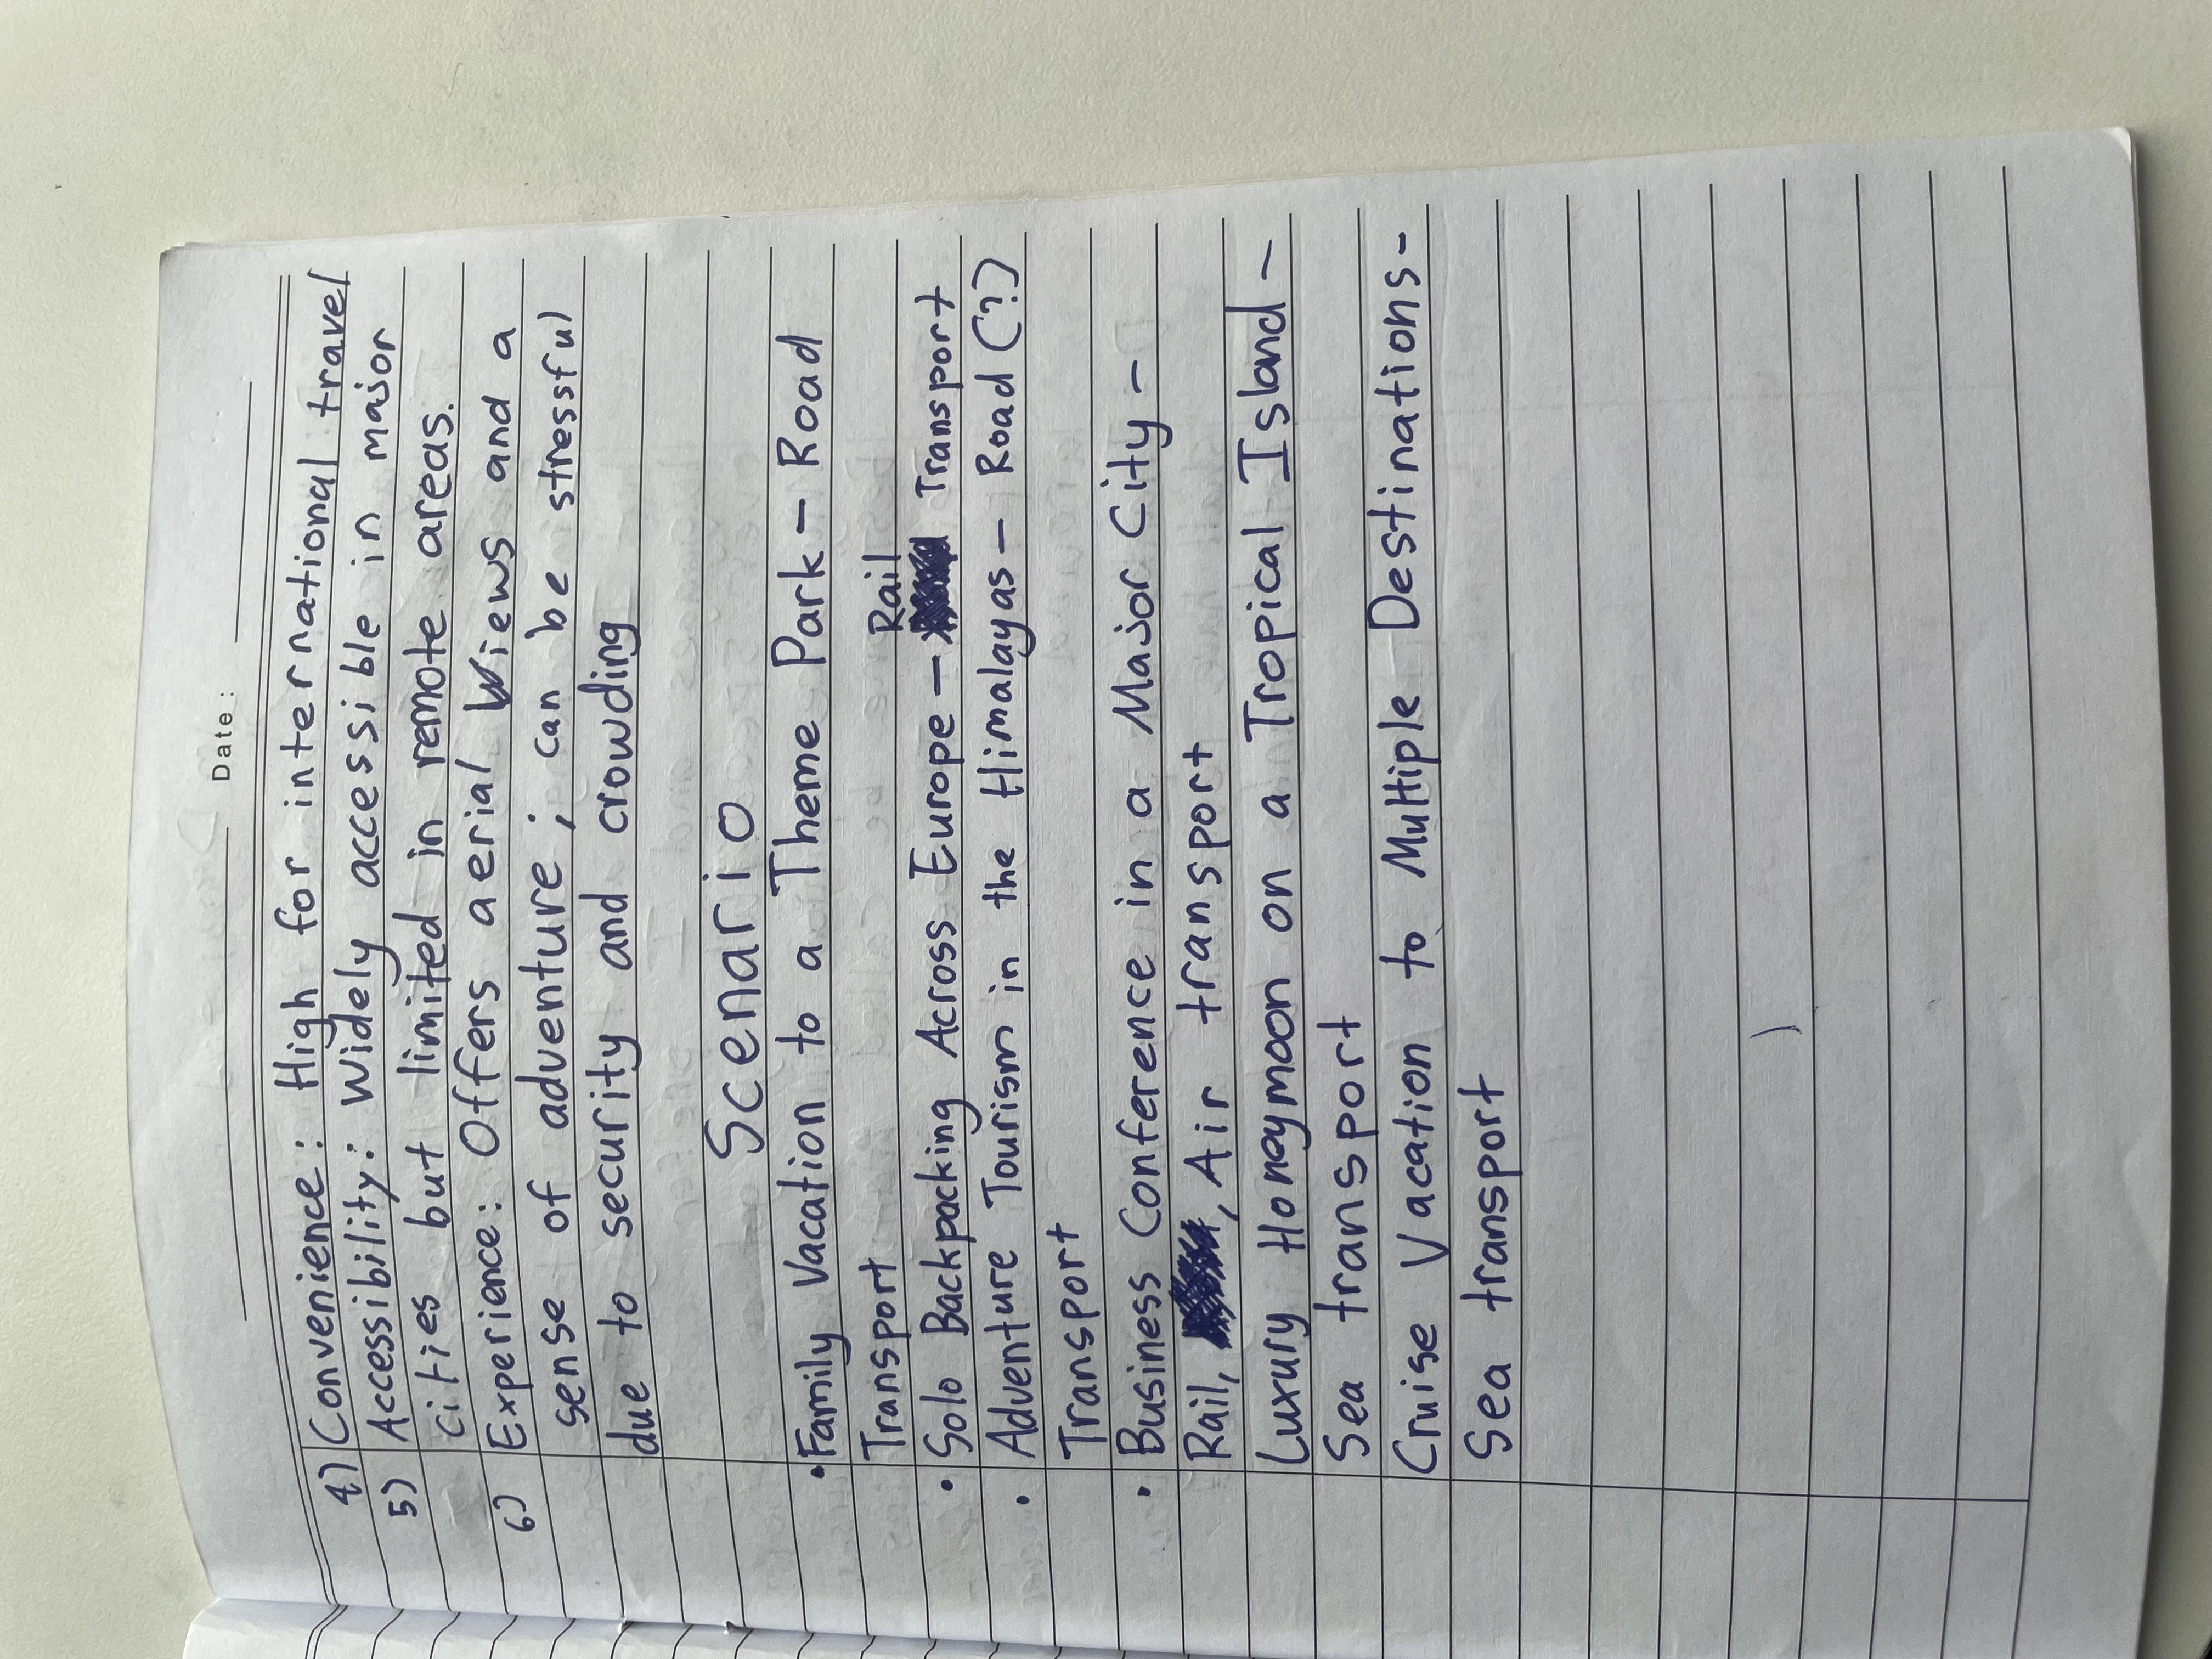 Date:
4) Convenience: High for international travel
5) Accessibility: Widely accessible in major
cities but limited in remote areas.
6) Experience: Offers aerial views and a
sense of adventure; can be stressful
due to security and crowding
Scenario
• Family Vacation to a Theme Park – Road
Transport
Rail
• Solo Backpacking Across Europe – Transport
• Adventure Tourism in the Himalayas – Road (?)
Transport
• Business Conference in a Major City –
Rail, , Air transport
Luxury Honeymoon on a Tropical Island –
Sea transport
Cruise Vacation to Multiple Destinations–
Sea transport